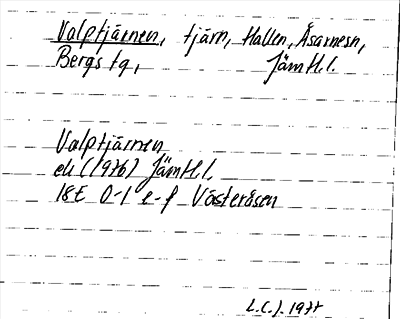 Valptjärnen, tjärn, Hallen, Åsarnesn,
Bergs tg, Jämtl.l.
Valptjärnen
ek (1976) Jämtl.l.
18E 0-1 e-f Västeråsen
L.C.J. 1977